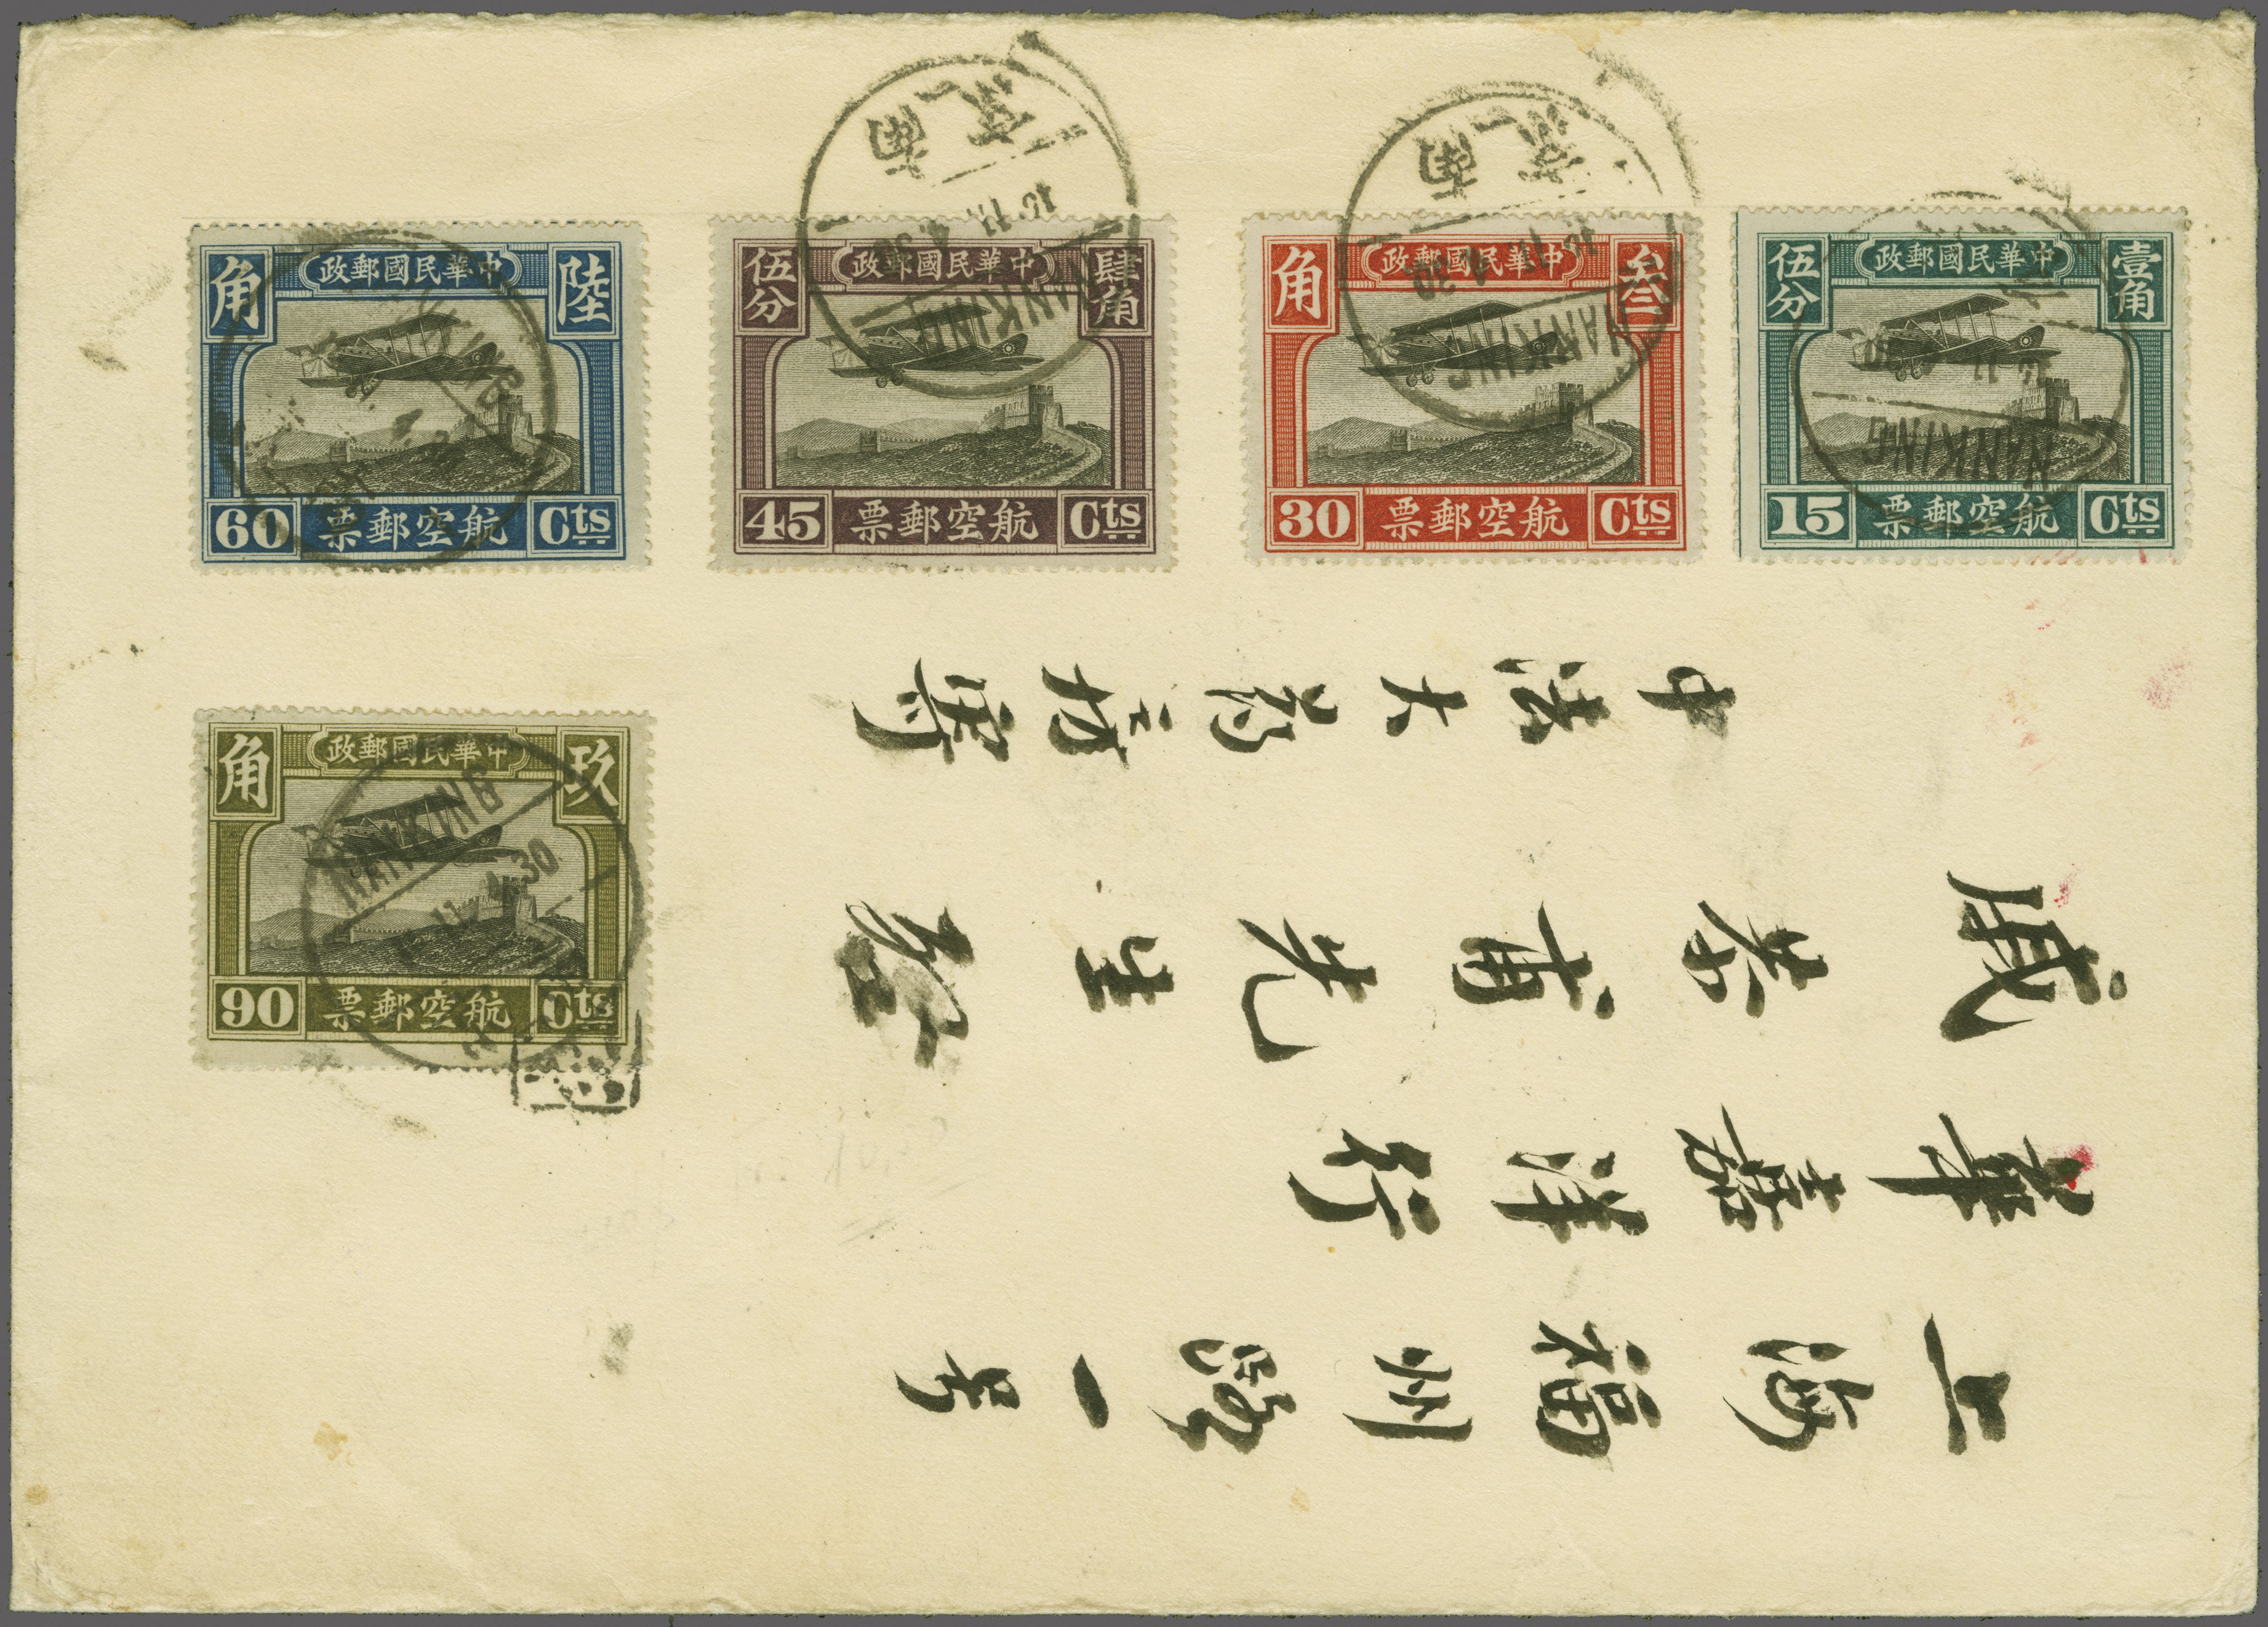 中華民國郵政
角 陸
60 航空郵票 Cts
中華民國郵政
伍分 肆角
45 航空郵票 Cts
中華民國郵政
角 叁
30 航空郵票 Cts
中華民國郵政
伍分 壹角
15 航空郵票 Cts
中華民國郵政
角 玖
90 航空郵票 Cts
南京
4.30
NANKING
南京
4.30
NANKING
NANKING
NANKING
NANKING
11 4.30
上海福州路一号
華嘉洋行
戚 甫先生啓
中法大药房寄